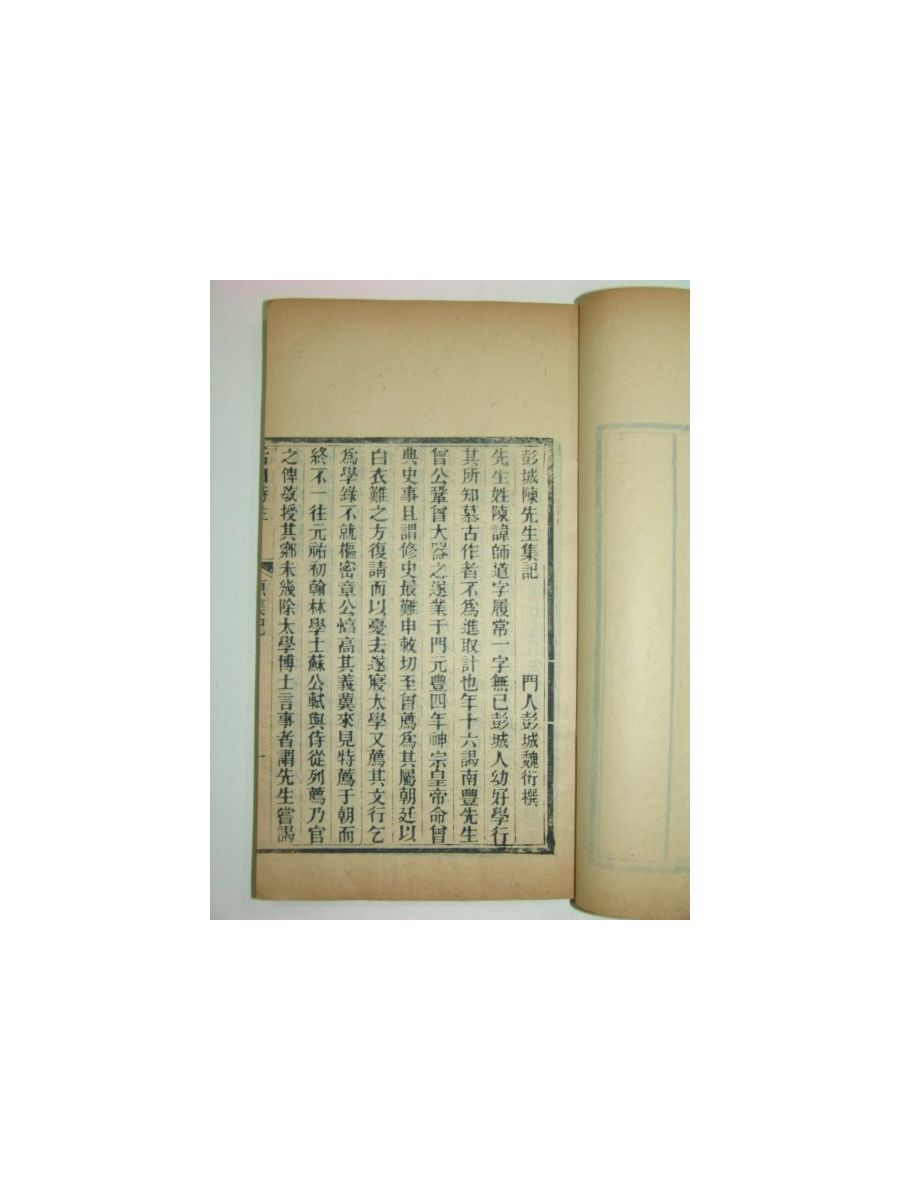 彭城陳先生集記
門人彭城魏衍撰
先生姓陳諱師道字履常一字無己彭城人幼好學行
其所知慕古作者不為進取計也年十六謁南豐先生
曾公鞏曾大器之遂業于門元豐四年神宗皇帝命曾
典史事且謂修史最難申敕切至曾薦為其屬朝廷以
白衣難之方復請而以憂去遂寢太學又薦其文行乞
為學錄不就樞密章公惇高其義冀來見特薦于朝而
終不一往元祐初翰林學士蘇公軾與侍從列薦乃官
之俾敎授其鄉未幾除太學博士言事者謂先生嘗謁